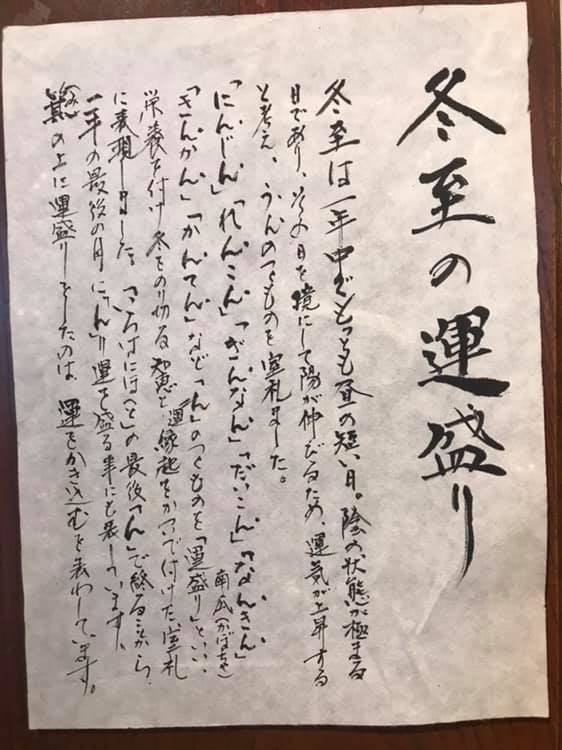 冬至の運盛り
冬至は一年中でもっとも昼の短い日。陰の状態が極まる
日であり、その日を境にして陽が伸びるため、運気が上昇する
と考え、うんのつくものを
ました。
「にんじん」「れんこん」「ぎんなん」「だいこん」「なんきん」
南瓜(かぼちゃ)
「きんかん」「かんてん」など「ん」のつくものを「運盛り」といい、
栄養を付け冬をのり切る知恵と運縁起をかついで付けた
に表現しました。「いろはにほへと」の最後「ん」で終ることから、
一年の最後の月に「ん」り運を盛る事にも表しています、
の上に運盛りをしたのは、運をかき込むを表わしています。